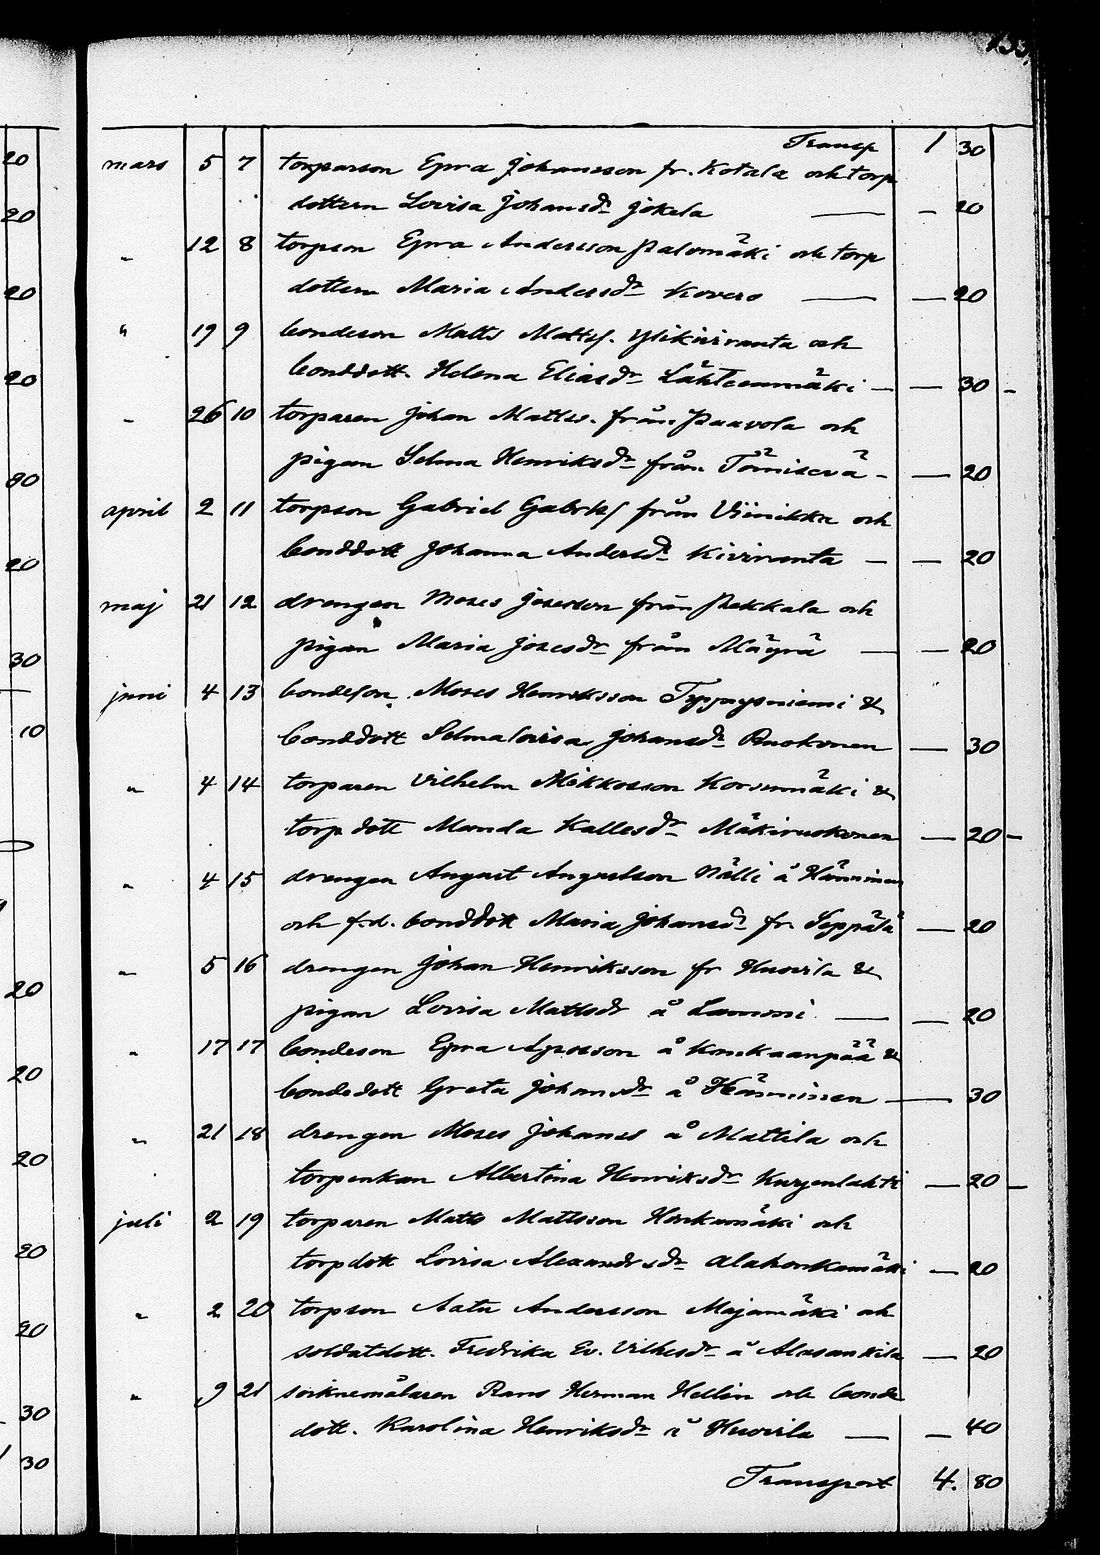 133.
Transp 1 30
mars 5 7 torparson Epra Johansson fr. Kotala och torp
dottern Lovisa Johansdr Jokela — — 20
" 12 8 torpson Epra Andersson Palomäki och torp
dottern Maria Andersdr Kovero — — 20
" 19 9 bondeson Matts Mattss. Ylikiviranta och
bonddott. Helena Eliasdr Lähteenmäki — — 30 -
" 26 10 torparen Johan Mattss. från Paavola och
pigan Selma Henriksdr från Törniserä - — 20
april 2 11 torpson Gabriel Gabrls från Viinikka och
bonddott Johanna Andersdr Kiviranta — — 20
maj 21 12 drengen Moses Josesson från Pekkala och
pigan Maria Josesdr från Mäyrä — — 20
juni 4 13 bondeson Moses Henriksson Typpysniemi &
bonddott Selma Lovisa Johansdr Ruokonen — 30
" 4 14 torparen Vilhelm Mikkosson Korsumäki &
torpdott Manda Kallesdr Mäkiruokonen — 20 -
" 4 15 drengen August Augustsson Nälli å Hänninen
och f.d. bonddott Maria Johansdr fr. Seppälä — 20
" 5 16 drengen Johan Henriksson fr Huovila &
pigan Lovisa Mattsdr å Lammi — — 20
" 17 17 bondeson Epra å Konkaanpää &
bondedott Greta Johansdr å Hänninen — 30
" 21 18 drengen Moses Johanss å Mattila och
torpenkan Albertina Henriksdr Kurjenlahti — 20 -
juli 2 19 torparen Matts Mattsson Honkamäki och
torpdott Lovisa Alexandersdr Alahonkamäki — 20
" 2 20 torpson Aatu Andersson Majamäki och
soldatdott. Fredrika Ev. Vilhesdr å Alasankila — 20
" 9 21 Hans Herman Hellin och bonde
dott. Karolina Henriksdr å Huovila — — 40
Transport 4. 80